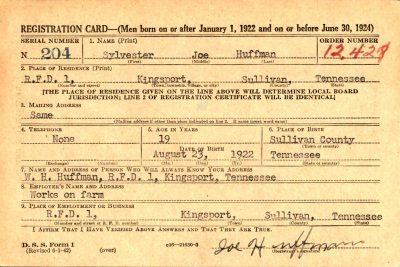 REGISTRATION CARD—(Men born on or after January 1, 1922 and on or before June 30, 1924)
SERIAL NUMBER 1. NAME (Print) ORDER NUMBER
N 204 Sylvester Joe Huffman 12,428
(First) (Middle) (Last)
2. PLACE OF RESIDENCE (Print)
R.F.D. 1, Kingsport, Sullivan, Tennessee
(Number and street) (Town, township, village, or city) (County) (State)
[THE PLACE OF RESIDENCE GIVEN ON THE LINE ABOVE WILL DETERMINE LOCAL BOARD
JURISDICTION; LINE 2 OF REGISTRATION CERTIFICATE WILL BE IDENTICAL]
3. MAILING ADDRESS
Same
[Mailing address if other than place indicated on line 2. If same insert word same]
4. TELEPHONE 5. AGE IN YEARS 6. PLACE OF BIRTH
None 19 Sullivan County
DATE OF BIRTH (Town or county)
August 23, 1922 Tennessee
(Exchange) (Number) (Mo.) (Day) (Yr.) (State or country)
7. NAME AND ADDRESS OF PERSON WHO WILL ALWAYS KNOW YOUR ADDRESS
W. H. Huffman, R.F.D. 1, Kingsport, Tennessee
8. EMPLOYER'S NAME AND ADDRESS
Works on farm
9. PLACE OF EMPLOYMENT OR BUSINESS
R.F.D. 1, Kingsport, Sullivan, Tennessee
(Number and street or R. F. D. number) (Town) (County) (State)
I AFFIRM THAT I HAVE VERIFIED ABOVE ANSWERS AND THAT THEY ARE TRUE.
D. S. S. Form 1
(Revised 6-1-42) (over) Joe Huffman
(Registrant's signature)